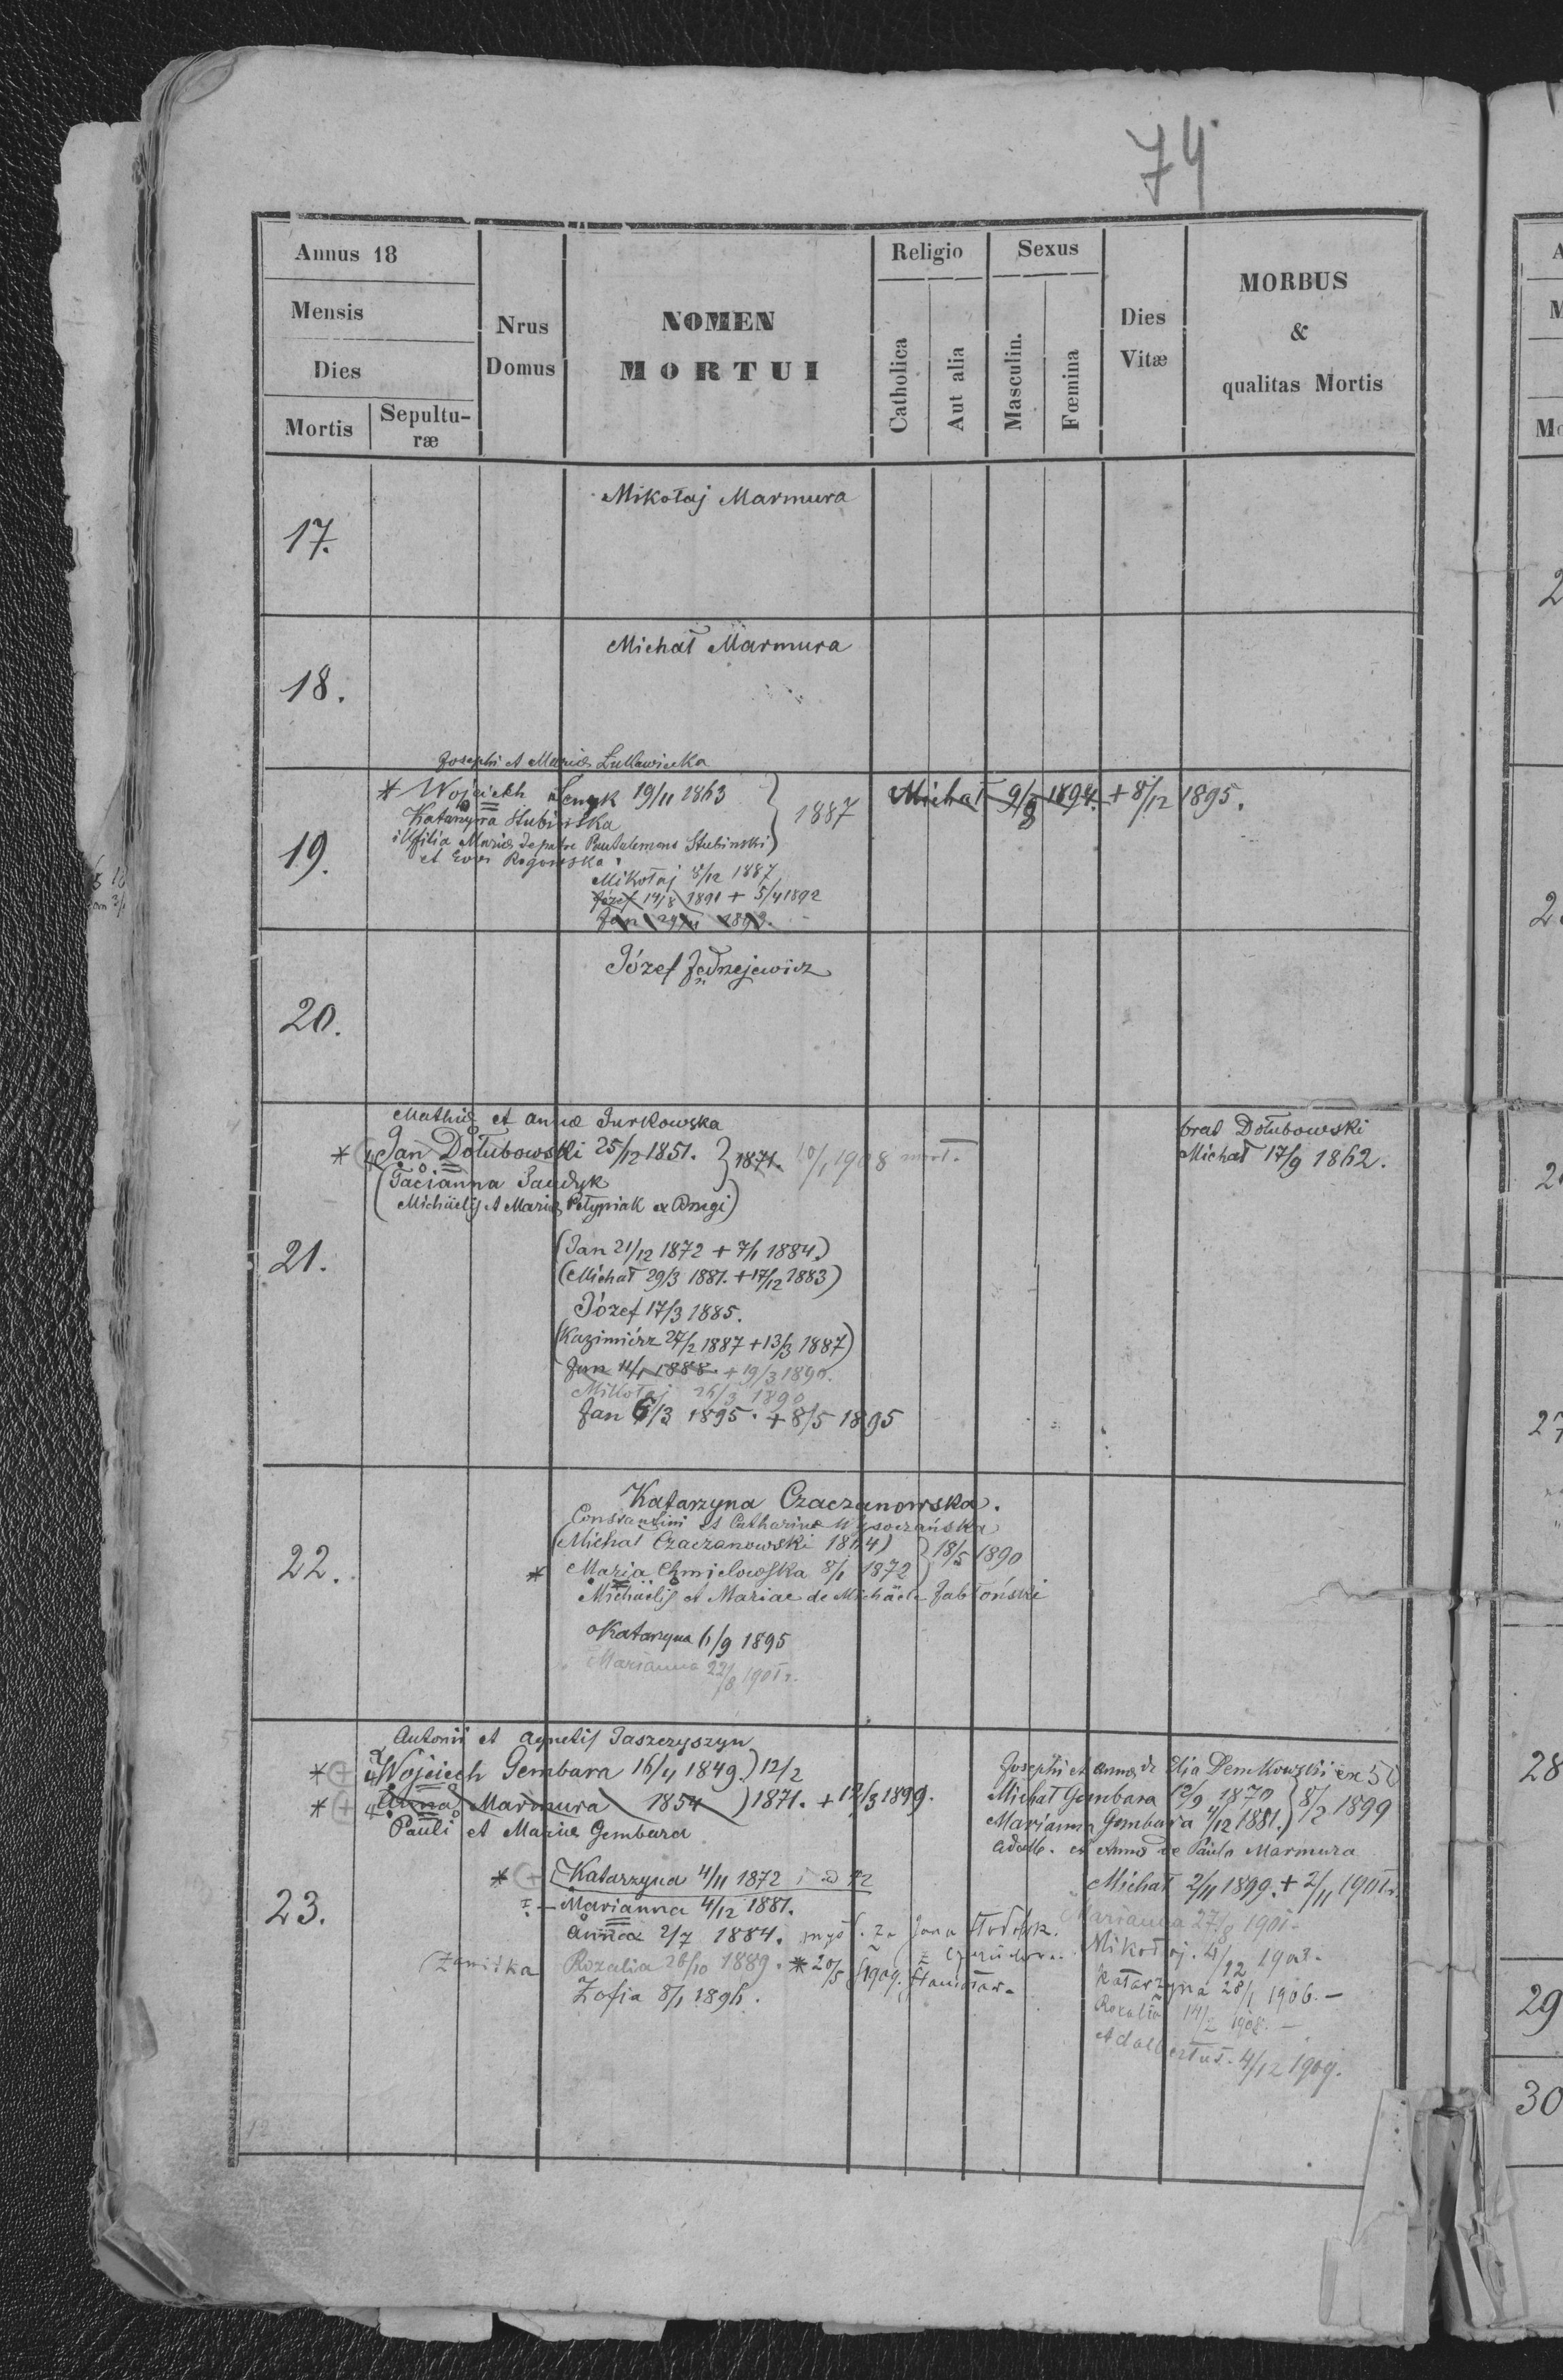 74
Annus 18
Mensis
Dies
Mortis
Sepultu-
ræ
Nrus
Domus
NOMEN
MORTUI
Religio
Catholica
Aut alia
Sexus
Masculin.
Fœmina
Dies
Vitæ
MORBUS
&
qualitas Mortis
17.
Mikołaj Marmura
18.
Michał Marmura
19.
Josephi et Mariæ
* Wojciech 19/11 1863
Katarzyna Stubińska
filia Mariæ de patre Stubinski)
et Rogowska
1887
Mikołaj 8/12 1887
Józef 14/8 1891 + 5/4 1892
Jan 1893.
Michał 9/8 1894. + 8/12 1895.
20.
Józef Jędrzejewicz
21.
Mathiæ et Annæ Jurkowska
* Jan Dołubowski 25/12 1851. } 1871. 1908
(Tacianna
Michäelis et Mariæ
brat Dołubowski
Michał 17/9 1862.
(Jan 21/12 1872 + 7/1 1884.)
(Michał 29/3 1881. + 17/12 1883)
Józef 17/3 1885.
(Kazimiérz 27/2 1887 + 13/3 1887)
Jan 1888. + 19/3 1890.
Mikołaj 26/3 1890
Jan 6/3 1895. + 8/5 1895
22.
Katarzyna Czaczanowska.
Constantini et Catharinæ Wysoczańska
(Michał Czaczanowski 1864) } 18/5 1890
* Maria Chmielowska 8/1 1872
Michäelis et Mariae de Michäele Jabłoński
Katarzyna 6/9 1895
Marianna 22/8 1901.
23.
Antonii et Agnetis Jaszczyszyn
* Wojciech Gembara 16/4 1849.) 12/2
* Anna Marmura 1854 ) 1871. + 12/3 1899.
Pauli et Mariæ Gembara
* Katarzyna 4/11 1872
Marianna 4/12 1881.
Anna 2/7 1884. za Jana
Rozalia 26/10 1889. * 20/5 1909.
Zofia 8/1 1896.
Josephi et Annæ de Elia Demkowski ex 50
Michał Gembara 1870 } 8/2 1899
Marianna Gembara 4/12 1881.)
Adalb. et Annæ de Paulo Marmura
Michał 2/11 1899. + 2/11 1901.
Marianna 27/8 1901.
Mikołaj. 4/12 1903.
Katarzyna 28/1 1906. —
Rozalia 14/2 1908. —
Adalbertus. 4/12 1909.
28
29
30